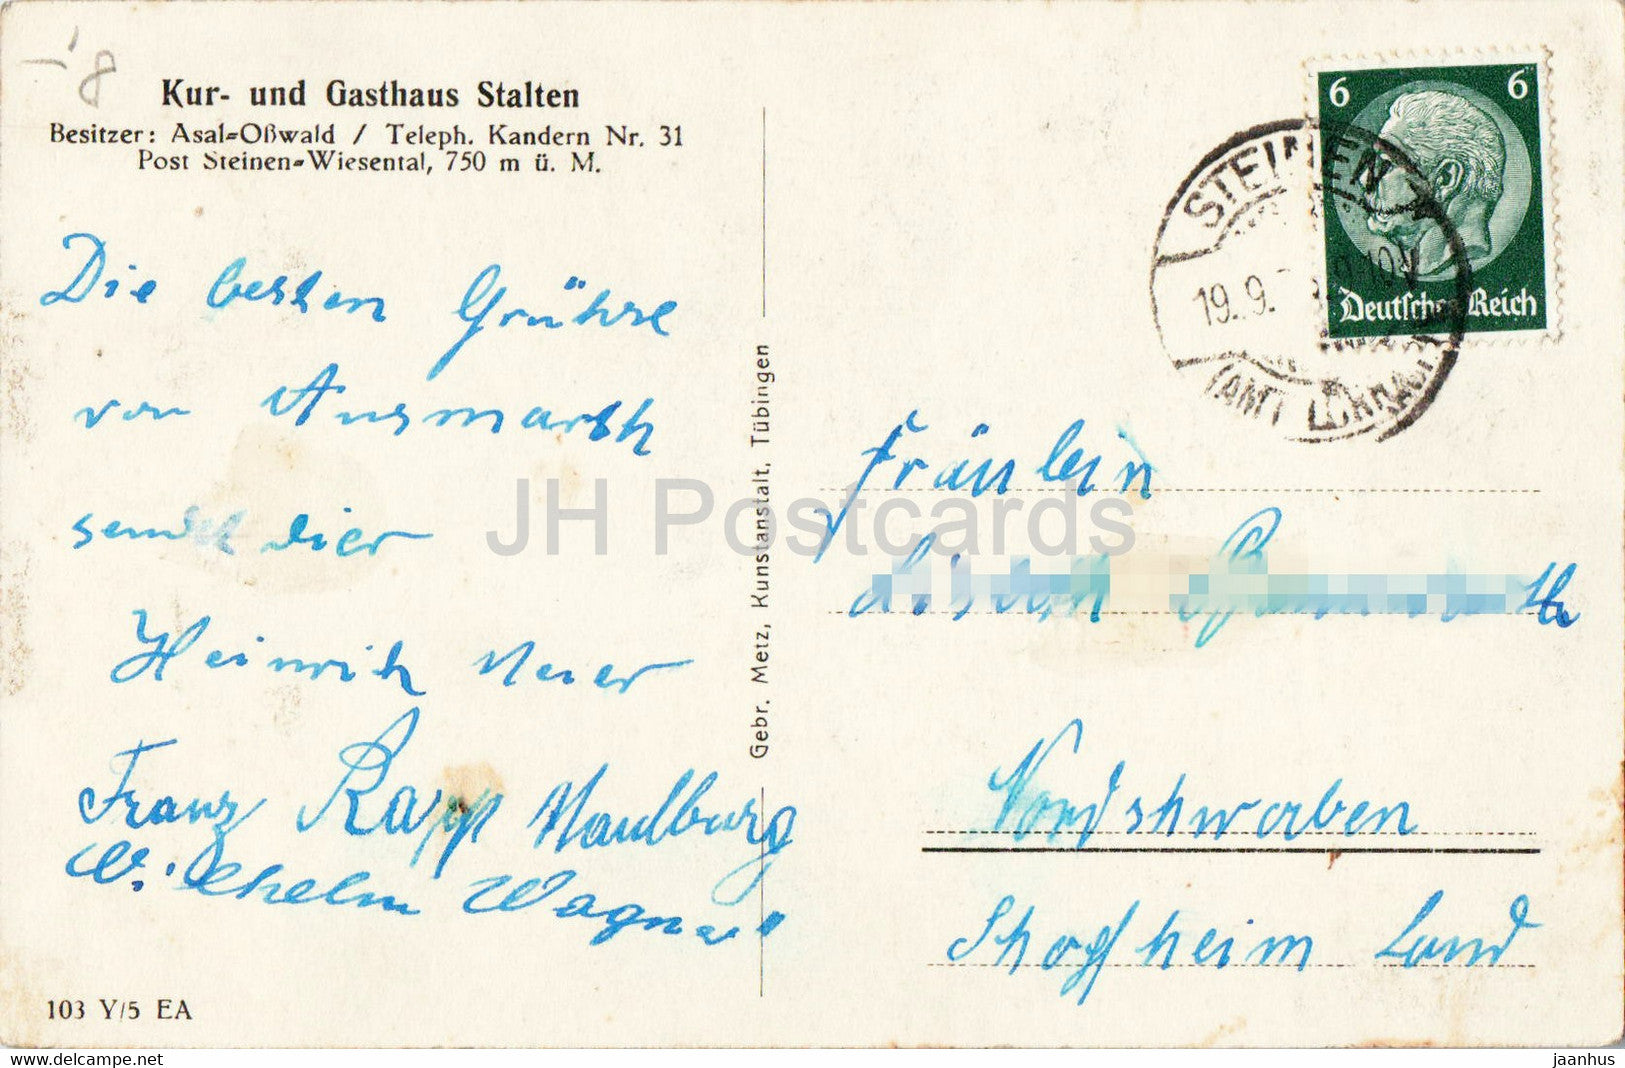 Kur- und Gasthaus Stalten
Besitzer: Asal-Oßwald / Teleph. Kandern Nr. 31
Post Steinen-Wiesental, 750 m ü. M.
Die besten Grühse
von Ausmarsch
sendet dier
Heinrich Meier
Franz Rapp Maulburg
Wilhelm Wagner
103 Y/5 EA
Gebr. Metz, Kunstanstalt, Tübingen
6 6
Deutsches Reich
STEINEN
19. 9.
(AMT LÖRRACH)
Fräulein
Nordschwaben
Schopfheim Land
JH Postcards
www.delcampe.net
jaanhus